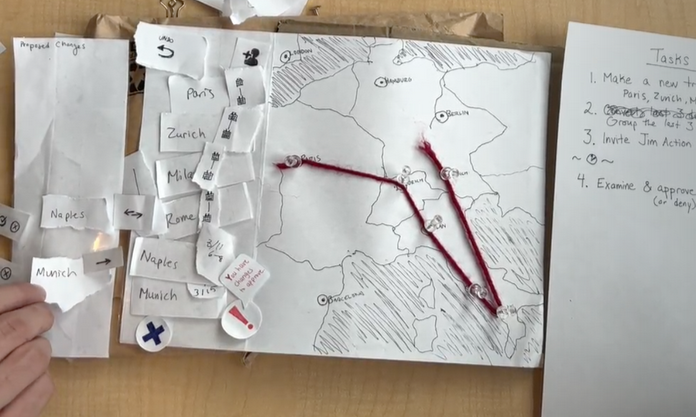 Proposed Changes
Naples
Munich
UNDO
Paris
Zurich
Mila
Rome
Naples
3/11
Munich
3/15
You have
changes
to approve
!
LONDON
HAMBURG
BERLIN
BARCELONA
Tasks
1. Make a new tr
Paris, Zurich, M
2.
Group the last 3
3. Invite Jim Action
4. Examine & approve
(or deny)